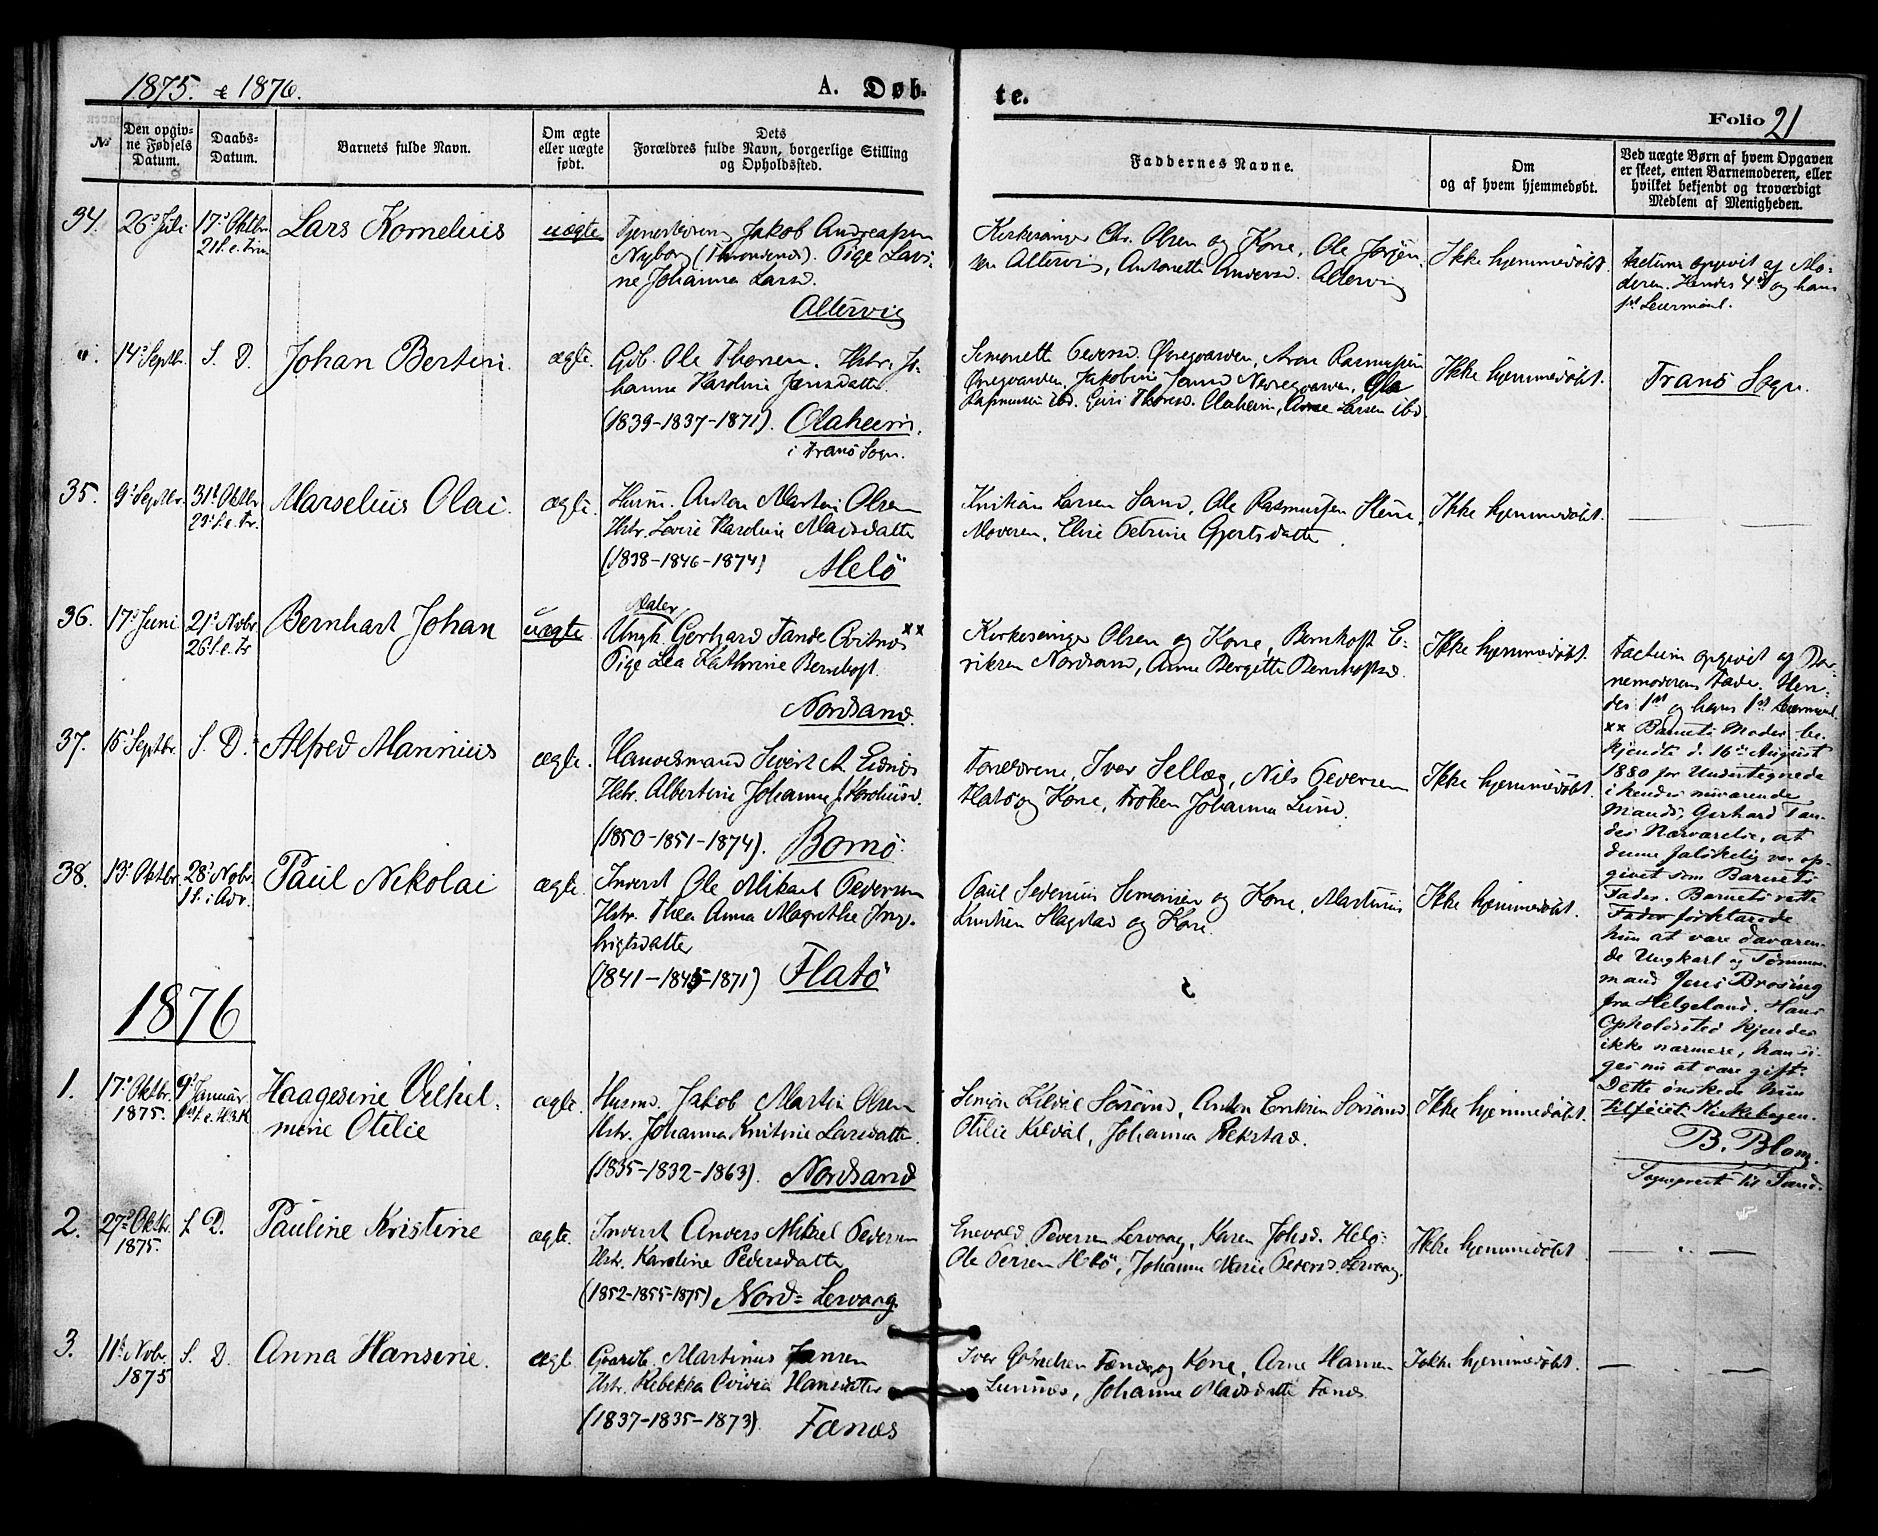 1875. & 1876.
A. Døb-
te.
Folio 21
No
Den opgiv-
ne Fødsels
Datum.
Daabs-
Datum.
Barnets fulde Navn.
Om ægte
eller uægte
født.
Dets
Forældres fulde Navn, borgerlige Stilling
og Opholdssted.
Faddernes Navne.
Om
og af hvem hjemmedøbt.
Ved uægte Børn af hvem Opgaven
er skeet, enten Barnemoderen, eller
hvilket bekjendt og troværdigt
Medlem af Menigheden.
34.
26 Juli
17 Oktbr.
21 S. e. Trin
Lars Kornelius
uægte
Jakob Andreassen
Nyborg (Throndenæs). Pige Lavi-
ne Johanna Larsd.
Altervig
Kirkesanger Chr. Olsen og Kone, Ole Jørgen-
sen Altervig, Antonette Andersd. Altervig
Ikke hjemmedøbt.
opgivet af Mo-
deren. Hendes 4de og hans
1st Leiermaal.
".
14 Septbr.
S. D.
Johan Bertin.
ægte.
Gdb. Ole Thoresen. Hstr. Jo-
hanna Karoline Jensdatter
(1839-1837-1871). Olaheim.
i Tranø Sogn.
Simonette Pedersd. Øvregaarden, Aron Rasmussen
Øvregaarden, Jakobine Nedregaarden, Ole
Rasmussen ibd. Thoresd. Olaheim, Arne Larsen ibd
Ikke hjemmedøbt.
Tranø Sogn.
35.
9 Septbr.
31 Oktbr
23 S. e. Tr.
Marselius Olai.
ægte.
Husm. Anton Martin Olsen
Hstr. Lovise Karoline Madsdatter
(1838-1846-1874) Melö
Kristian Larsen Sand, Ole Rasmussen Stene,
Moderen, Elise Petrine Gjertsdatter.
Ikke hjemmedøbt.
36.
17 Juni
21 Novbr
26 S. e. Tr
Bernhart Johan
uægte
Maler
Ungk. Gerhard Tande xx
Pige Lea Kathrine Bernhoft.
Nordsand.
Kirkesanger Olsen og Kone, Bernhoft E-
riksen Nordsand, Anne Bergitte Bernhoftsd.
Ikke hjemmedøbt.
Factum opgivet af Bar-
nemoderens Fader. Hen-
des 1st og hans 1st Leiermaal.
xx Barnets Moder be-
kjendte d. 16de August
1880 for Undertegnede
i hendes nuværende
Mands, Gerhard Tan-
des Nærværelse, at
denne falskelig var op-
givet som Barnets
Fader. Barnets rette
Fader forklarede
hun at være daværen-
de Ungkarl og Tømmer-
mand Jens Brosing
fra Helgeland. Hans
Opholdssted kjendes
ikke nærmere, han si-
ges nu at være gift.
Dette ønskede hun
tilføiet Kirkebogen.
B. Blom.
Sogneprest til Sand.
37.
15 Septbr.
S. D.
Alfred Marinius
ægte.
Handelsmand Sivert A. Eidnes
Hstr. Albertine Johanne J. Kordiusd.
(1850-1851-1874). Bornö.
Forældrene, Iver Sellæg, Nils Pedersen
Flatø og Kone, Frøken Johanna Lund.
Ikke hjemmedøbt.
38.
13 Oktbr
28 Novbr.
1 S. i Adv.
Paul Nikolai
ægte.
Inderst Ole Mikael Pedersen
Hstr. Thea Anna Magrethe Ing-
brigtsdatter
(1841-1845-1871) Flatö
Paul Severius Simonsen og Kone, Martinus
Kristian Slagstad og Kone.
Ikke hjemmedøbt.
1876
1.
17 Oktbr.
1875.
9 Januar
1st S. e. H3K
Haagesine Vilhel-
mine Otilie
ægte.
Husmd. Jakob Martin Olsen
Hstr. Johanna Kristine Larsdatter.
(1835-1832-1863). Nordsand
Simon Kilvil Sørsand, Anton Eriksen Sørsand
Otilie Kilvål, Johanna Rekstad.
Ikke hjemmedøbt.
2.
27 Oktbr.
1875.
S. D.
Pauline Kristine
ægte.
Inderst Anders Mikael Pedersen
Hstr. Karoline Pedersdatter
(1852-1855-1875) Nord-Lervaag.
Enevold Pedersen Lervaag, Karen Johsd. Helø.
Ole Persen Helø, Johanne Marie Pedersd. Lervaag.
Ikke hjemmedøbt.
3.
11 Nobr.
1875
S. D.
Anna Hansine.
ægt.
Gaardb. Martinus Jensen
Hstr. Rebekka Ovidia Hansdatter
(1837-1835-1873). Fænæs
Iver Gabrielsen Fænæs og Kone, Arne Hansen
Lunnæs, Johanne Madsdatter Fænæs.
Ikke hjemmedøbt.